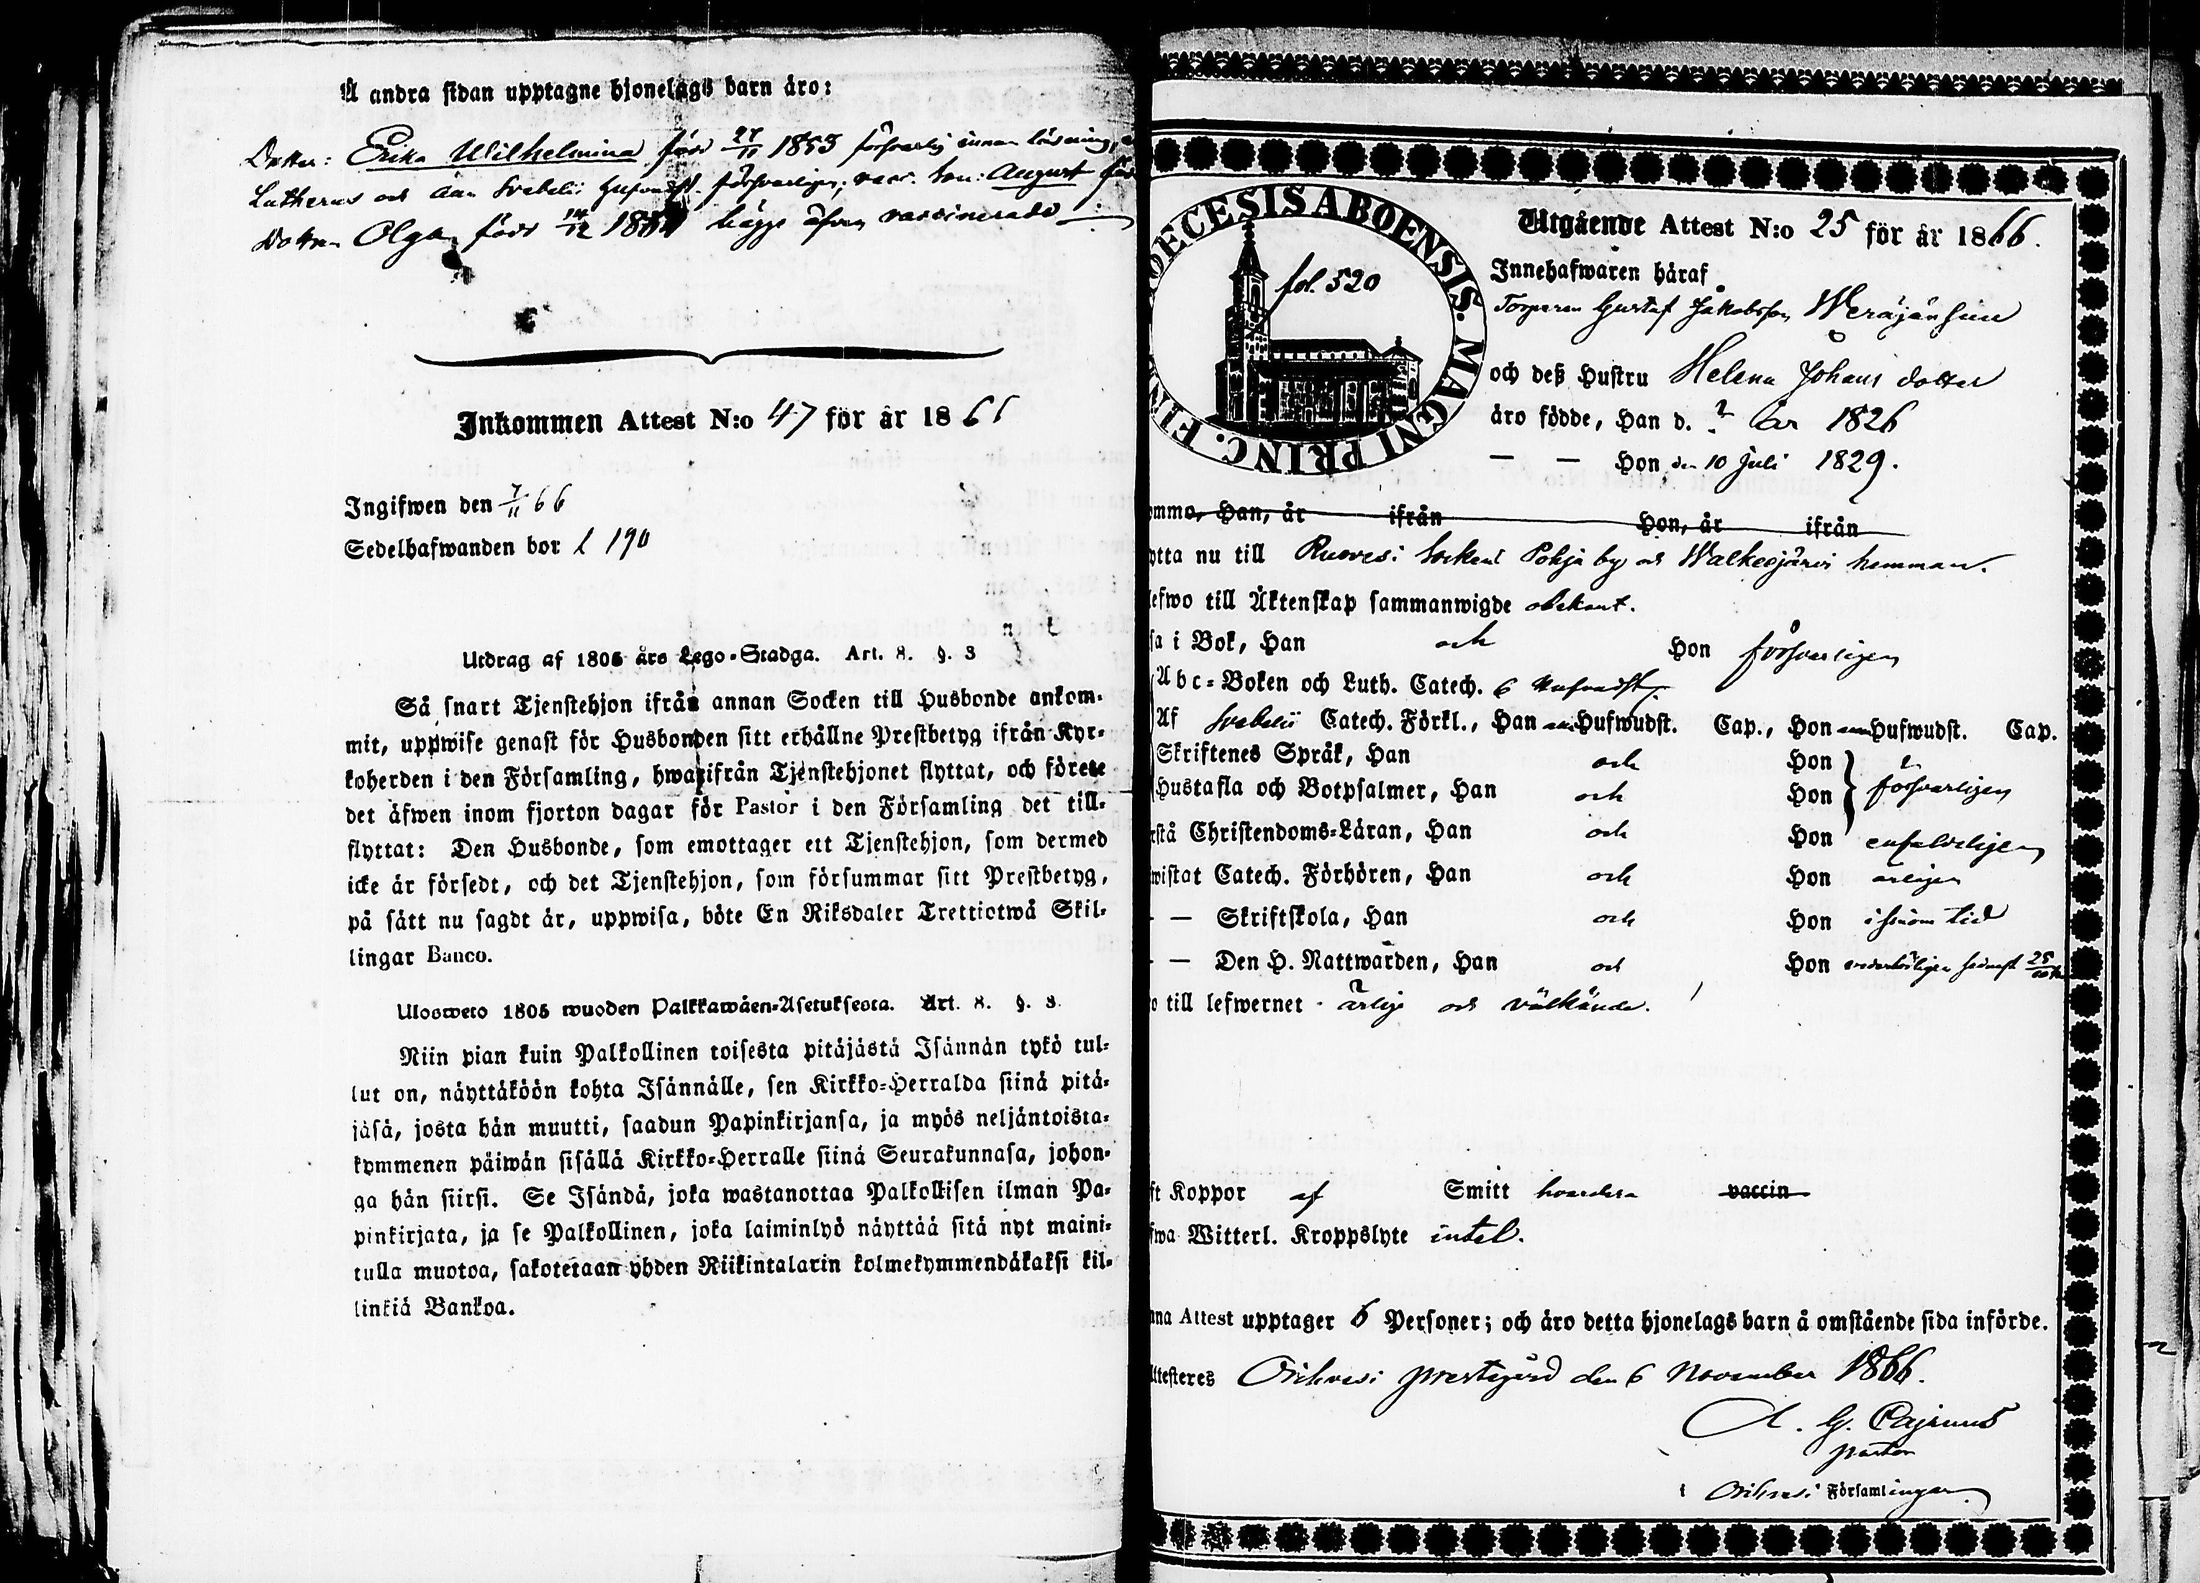 Å andra sidan upptagne hjonelags barn äro:
Dotter: Erika Wilhelmina född 27/11 1853 försvarlig innan läsning,
Lutherus och Svebelii Hufvudst. försvarligen; vacc. Son: August
Dottren Olga född 14/12 1861 bägge äfven vaccinerade
Inkommen Attest N:o 47 för år 1866
Ingifwen den 7/11 66
Sedelhafwanden bor L 190
Utdrag af 1805 års Lego-Stadga. Art. 8. §. 3
Så snart Tjenstehjon ifrån annan Socken till Husbonde ankom-
mit, uppwise genast för Husbonden sitt erhållne Prestbetyg ifrån Kyr-
koherden i den Församling, hwarifrån Tjenstehjonet flyttat, och förete
det äfwen inom fjorton dagar för Pastor i den Församling det till-
flyttat: Den Husbonde, som emottager ett Tjenstehjon, som dermed
icke är försedt, och det Tjenstehjon, som försummar sitt Prestbetyg,
på sätt nu sagdt är, uppwisa, böte En Riksdaler Trettiotwå Skil-
lingar Banco.
Ulosweto 1805 wuoden Palkkawäen-Asetuksesta. Art. 8. §. 3.
Niin pian kuin Palkollinen toisesta pitäjästä Isännän tykö tul-
lut on, näyttäköön kohta Isännälle, sen Kirkko-Herralda siinä pitä-
jäsä, josta hän muutti, saadun Papinkirjansa, ja myös neljäntoista-
kymmenen päiwän sisällä Kirkko-Herralle siinä Seurakunnasa, johon-
ga hän siirsi. Se Isändä, joka wastanottaa Palkollisen ilman Pa-
pinkirjata, ja se Palkollinen, joka laiminlyö näyttää sitä nyt maini-
tulla muotoa, sakotetaan yhden Riikintalarin kolmekymmendäkaksi kil-
linkiä Bankoa.
DIOECESIS ABOENSIS. MAGNI PRINC. FIN
fol. 520
Utgående Attest N:o 25 för år 1866.
Innehafwaren häraf
Torparen Gustaf Jakobsson Weräjänsuu
och deß Hustru Helena Johans dotter
äro födde, Han d. ? år 1826
— — Hon den 10 Juli 1829.
ommo, Han, år ifrån Hon, år ifrån
ytta nu till Ruovesi Socken Pohja by och Walkeajärvi hemman.
lefwo till Äktenskap sammanwigde obekant.
sa i Bok, Han och Hon försvarligen
Abc-Boken och Luth. Catech. 6 Hufvudst.
Af Svebelii Catech. Förkl., Han Hufwudst. Cap., Hon Hufwudst. Cap.
Skriftenes Språk, Han och Hon
Hustafla och Botpsalmer, Han och Hon försvarligen
rstå Christendoms-Läran, Han och Hon enfaldeligen
wistat Catech. Förhören, Han och Hon årligen
- — Skriftskola, Han och Hon i sinom tid
- — Den H. Nattwarden, Han och Hon vederbörligen senast 25/
o till lefwernet ärlige och välkände.
ft Koppor af Smitt hvardera vaccin
fwa Witterl. Kroppslyte intet.
nna Attest upptager 6 Personer; och äro detta hjonelags barn å omstående sida införde.
ttesteres Orihvesi prestgård den 6 November 1866.
A. G. Cajanus
pastor
i Orihvesi Församlingar